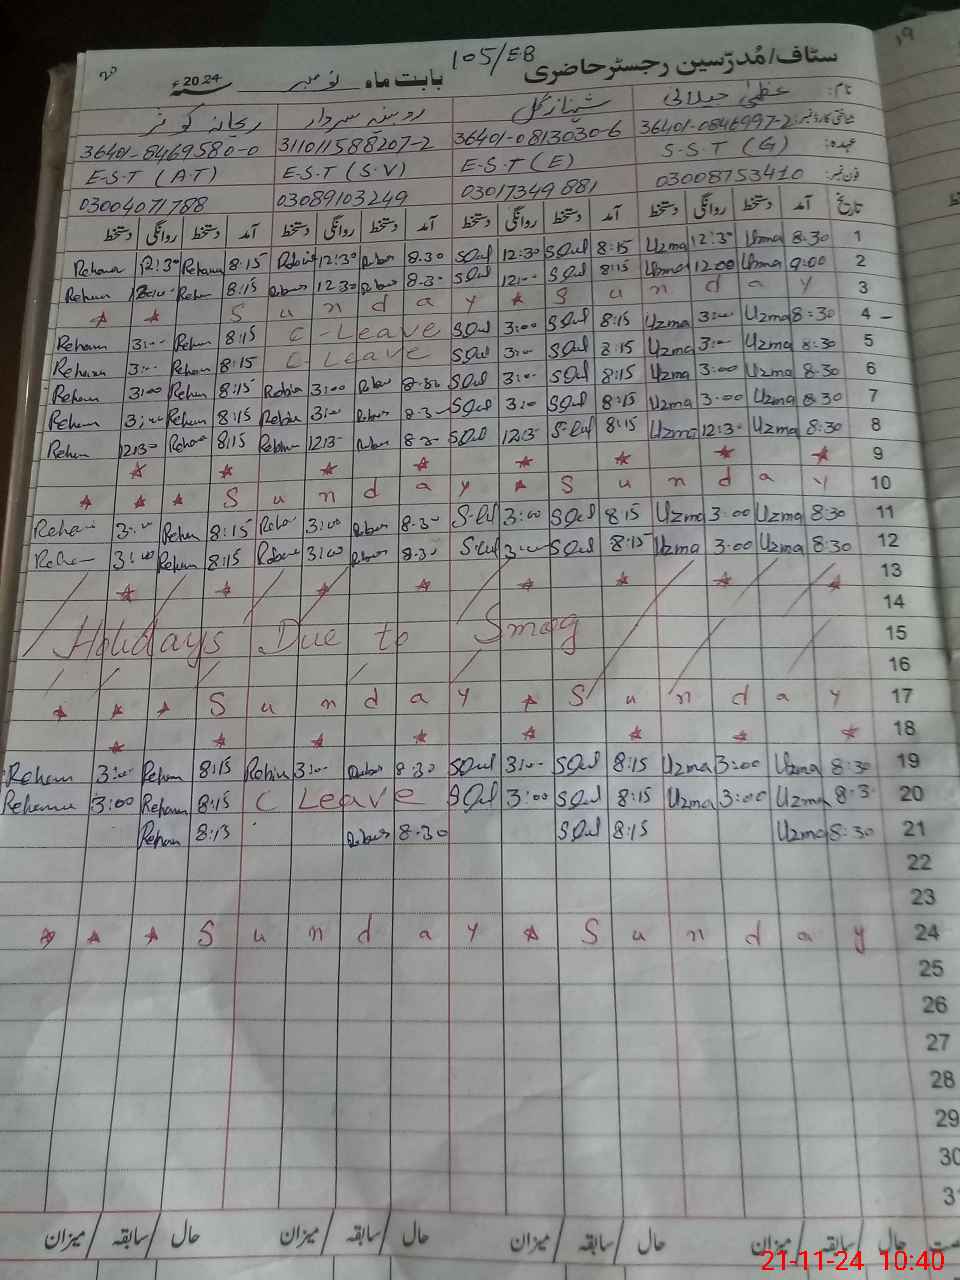 ستاف/مُدرّسین رجسٹر حاضری 105/EB بابت ماہ نومبر 2024ء
۱۹
نام: عظمیٰ جیلانی شہناز گل سردار ریحانہ کوثر
شناختی کارڈ نمبر: 36401-0846997-2 36401-0813030-6 311011588207-2 36401-8469580-0
عہدہ: S.S.T (G) E.S.T (E) E.S.T (S.V) E.S.T (A.T)
فون نمبر: 03008753410 03017349881 03089103249 03004071788
تاریخ آمد دستخط روانگی دستخط آمد دستخط روانگی دستخط آمد دستخط روانگی دستخط آمد دستخط روانگی دستخط
Rehana 12:30 Rehana 8:15 12:30 8.30 SGul 12:30 SGul 8:15 Uzma 12:30 Uzma 8.30 1
Reham Reham 8:15 12:30 8.30 SGul 12:00 SGul 8:15 Uzma 12.00 Uzma 9:00 2
S u n d a y S u n d a y 3
Reham 3:00 Rehm 8:15 C-Leave SGul 3:00 SGul 8:15 Uzma 3:00 Uzma 8:30 4
Rehana 3:00 Rehm 8:15 C-Leave SGul 3:00 SGul 8:15 Uzma 3:00 Uzma 8.30 5
Reham 3:00 Rehm 8:15 3:00 8.30 SGul 3:00 SGul 8:15 Uzma 3:00 Uzma 8.30 6
Rehm 3:00 Reham 8:15 3:00 8.30 SGul 3:00 SGul 8:15 Uzma 3.00 Uzma 8:30 7
Rehm 12:30 Rehana 8:15 12:30 8.30 SGul 12:30 S-Gul 8:15 Uzma 12:30 Uzma 8:30 8
9
S u n d a y S u n d a y 10
Reham 3:00 Rehm 8:15 3:00 8.30 S-Gul 3:00 SGul 8:15 Uzma 3:00 Uzma 8:30 11
Reham 3:00 Rehm 8:15 3:00 8.30 S.Gul 3:00 SGul 8:15 Uzma 3:00 Uzma 8:30 12
13
14
Holidays Due to Smog 15
16
S u n d a y S u n d a y 17
18
Reham 3:00 Rehm 8:15 3:00 8.30 SGul 3:00 SGul 8:15 Uzma 3:00 Uzma 8:30 19
Rehana 3:00 Reham 8:15 C Leave SGul 3:00 SGul 8:15 Uzma 3:00 Uzma 8.30 20
Reham 8:15 8.30 SGul 8:15 Uzma 8:30 21
22
23
S u n d a y S u n d a y 24
25
26
27
28
29
30
3
حال / سابقہ / میزان حال / سابقہ / میزان حال / سابقہ / میزان حال / سابقہ / میزان
21-11-24 10:40